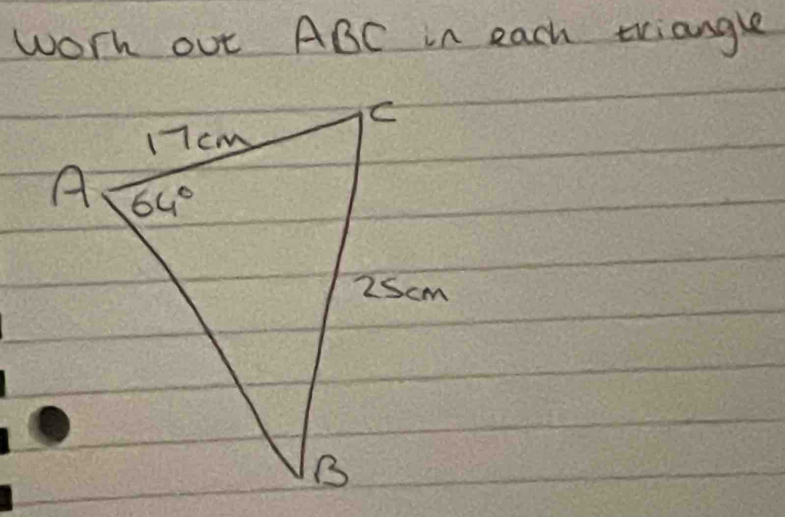 Work out ABC in each triangle
C
17cm
A
64°
25cm
B